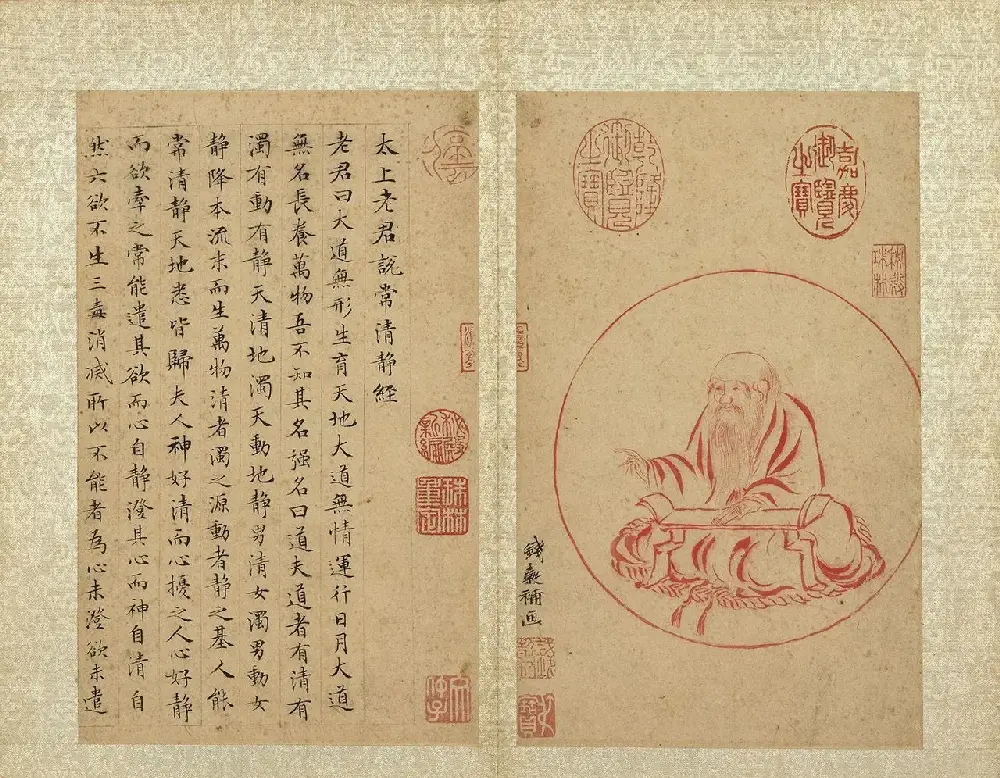 嘉慶御覽之寶
乾隆御覽之寶
秘殿珠林
錢糓補画
太上老君說常清静經
老君曰大道無形生育天地大道無情運行日月大道
無名長養萬物吾不知其名强名曰道夫道者有清有
濁有動有静天清地濁天動地静男清女濁男動女
静降本流末而生萬物清者濁之源動者静之基人能
常清静天地悉皆歸夫人神好清而心擾之人心好静
而欲牽之常能遣其欲而心自静澄其心而神自清自
然六欲不生三毒消滅所以不能者為心未澄欲未遣
秘殿新編
珠林重定